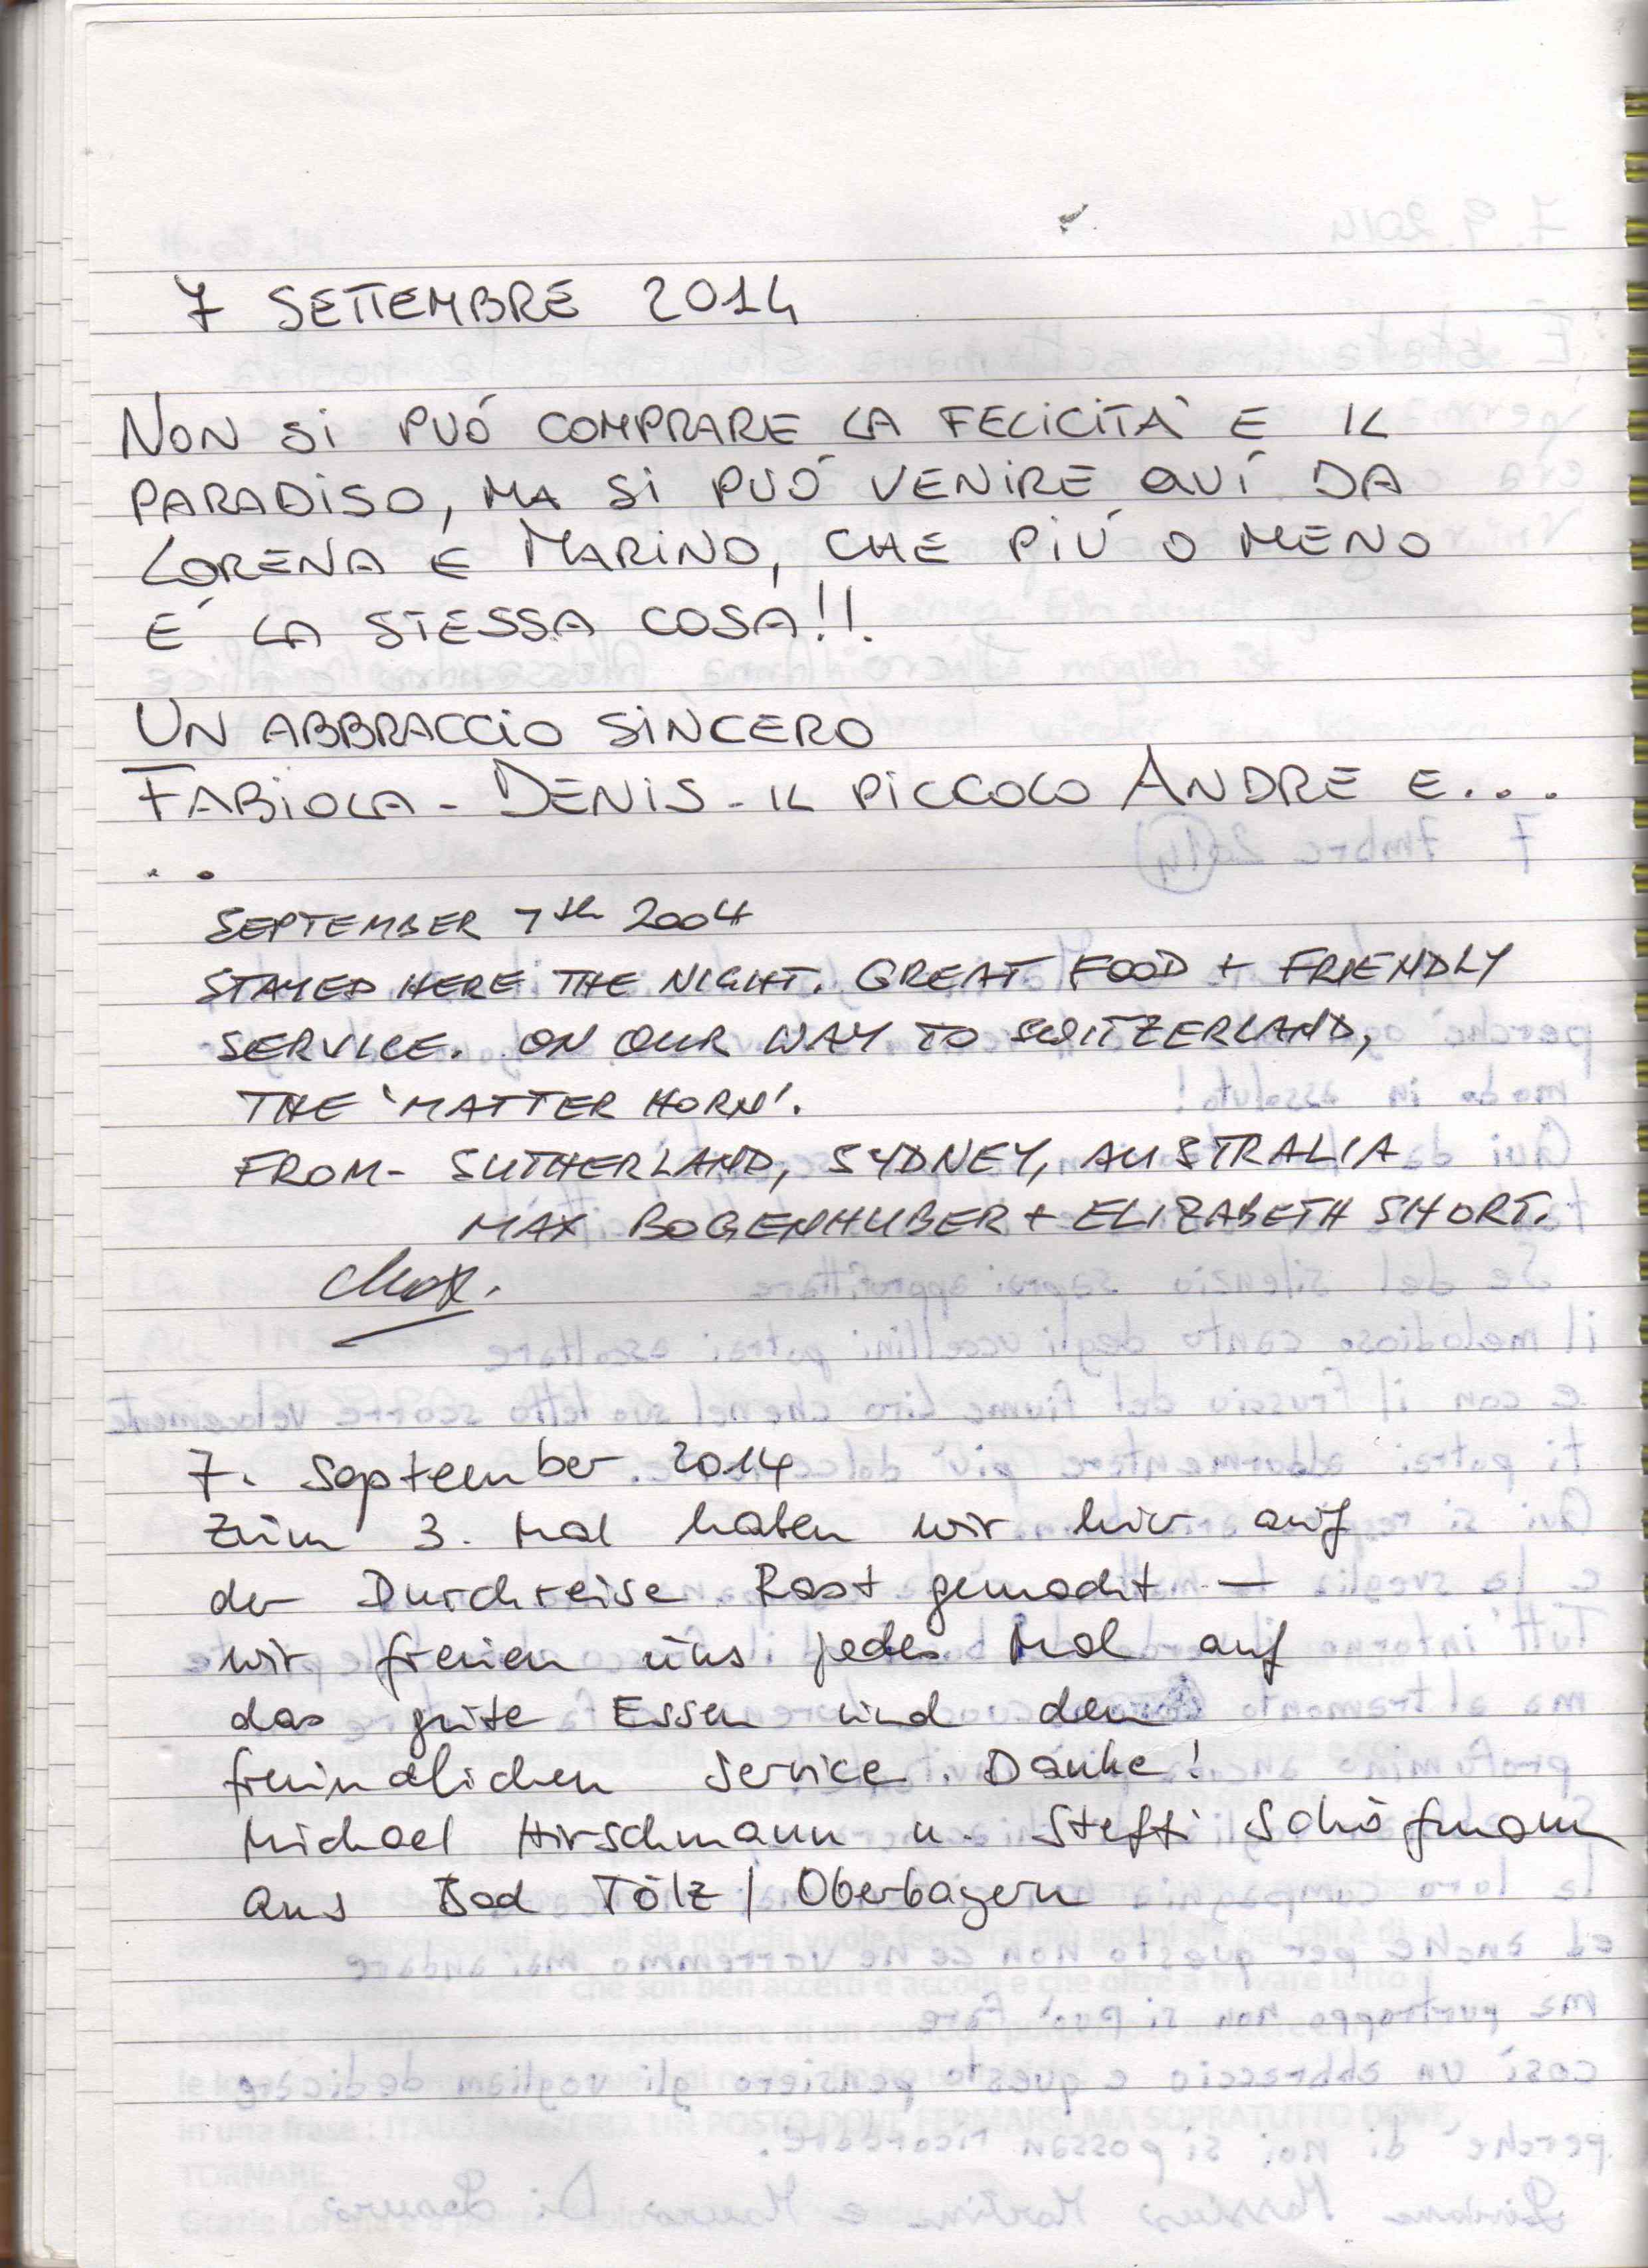 7 SETTEMBRE 2014
NON SI PUÓ COMPRARE LA FELICITÀ E IL
PARADISO, MA SI PUÓ VENIRE QUÍ DA
LORENA E MARINO, CHE PIÚ O MENO
É LA STESSA COSA!!
UN ABBRACCIO SINCERO
FABIOLA - DENIS - IL PICCOLO ANDRE E...
..
SEPTEMBER 7th 2004
STAYED HERE THE NIGHT. GREAT FOOD + FRIENDLY
SERVICE. ON OUR WAY TO SWITZERLAND,
THE 'MATTER HORN'.
FROM- SUTHERLAND, SYDNEY, AUSTRALIA
MAX BOGENHUBER + ELIZABETH SHORT.
Max.
7. September 2014
Zum 3. Mal haben wir hier auf
der Durchreise Rast gemacht —
wir freuen uns jedes Mal auf
das gute Essen und den
freundlichen Service. Danke!
Michael Hirschmann u. Steffi Schöfmann
aus Bad Tölz / Oberbayern